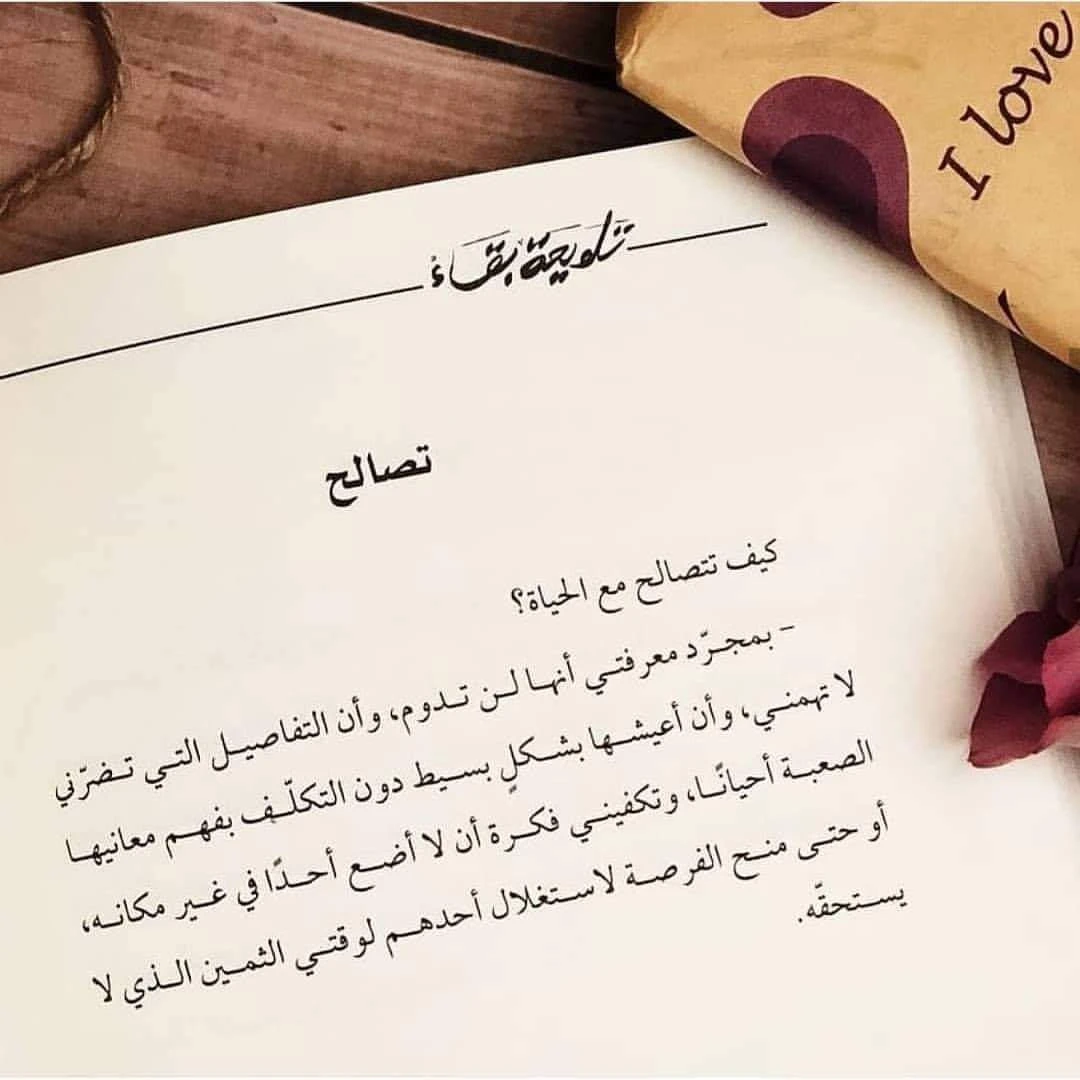 I love
تلويحة بقاء
تصالح
كيف تتصالح مع الحياة؟
- بمجرّد معرفتي أنها لن تدوم، وأن التفاصيل التي تضرّني
لا تهمني، وأن أعيشها بشكلٍ بسيط دون التكلّف بفهم معانيها
الصعبة أحيانًا، وتكفيني فكرة أن لا أضع أحدًا في غير مكانه،
أو حتى منح الفرصة لاستغلال أحدهم لوقتي الثمين الذي لا
يستحقّه.